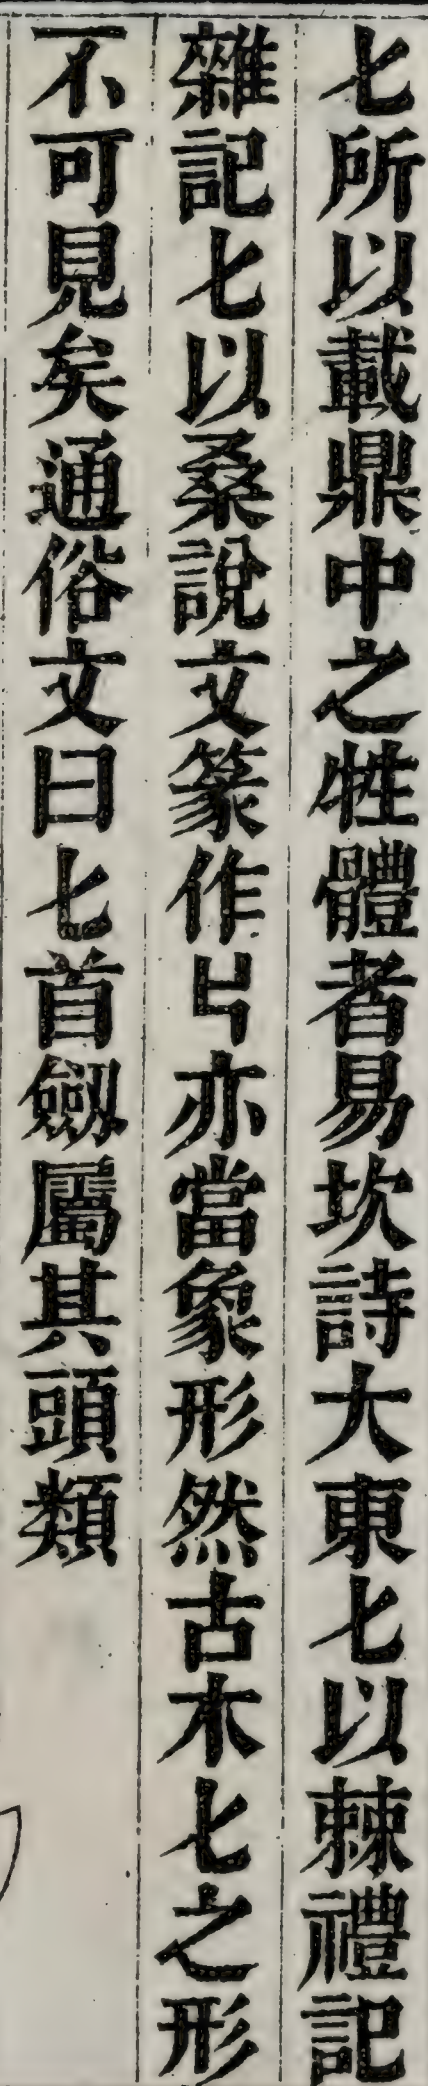 匕所以載鼎中之牲體者易坎詩大東匕以棘禮記
雜記匕以桑說文篆作𠤎亦當象形然古木匕之形
不可見矣通俗文曰匕首劒屬其頭類